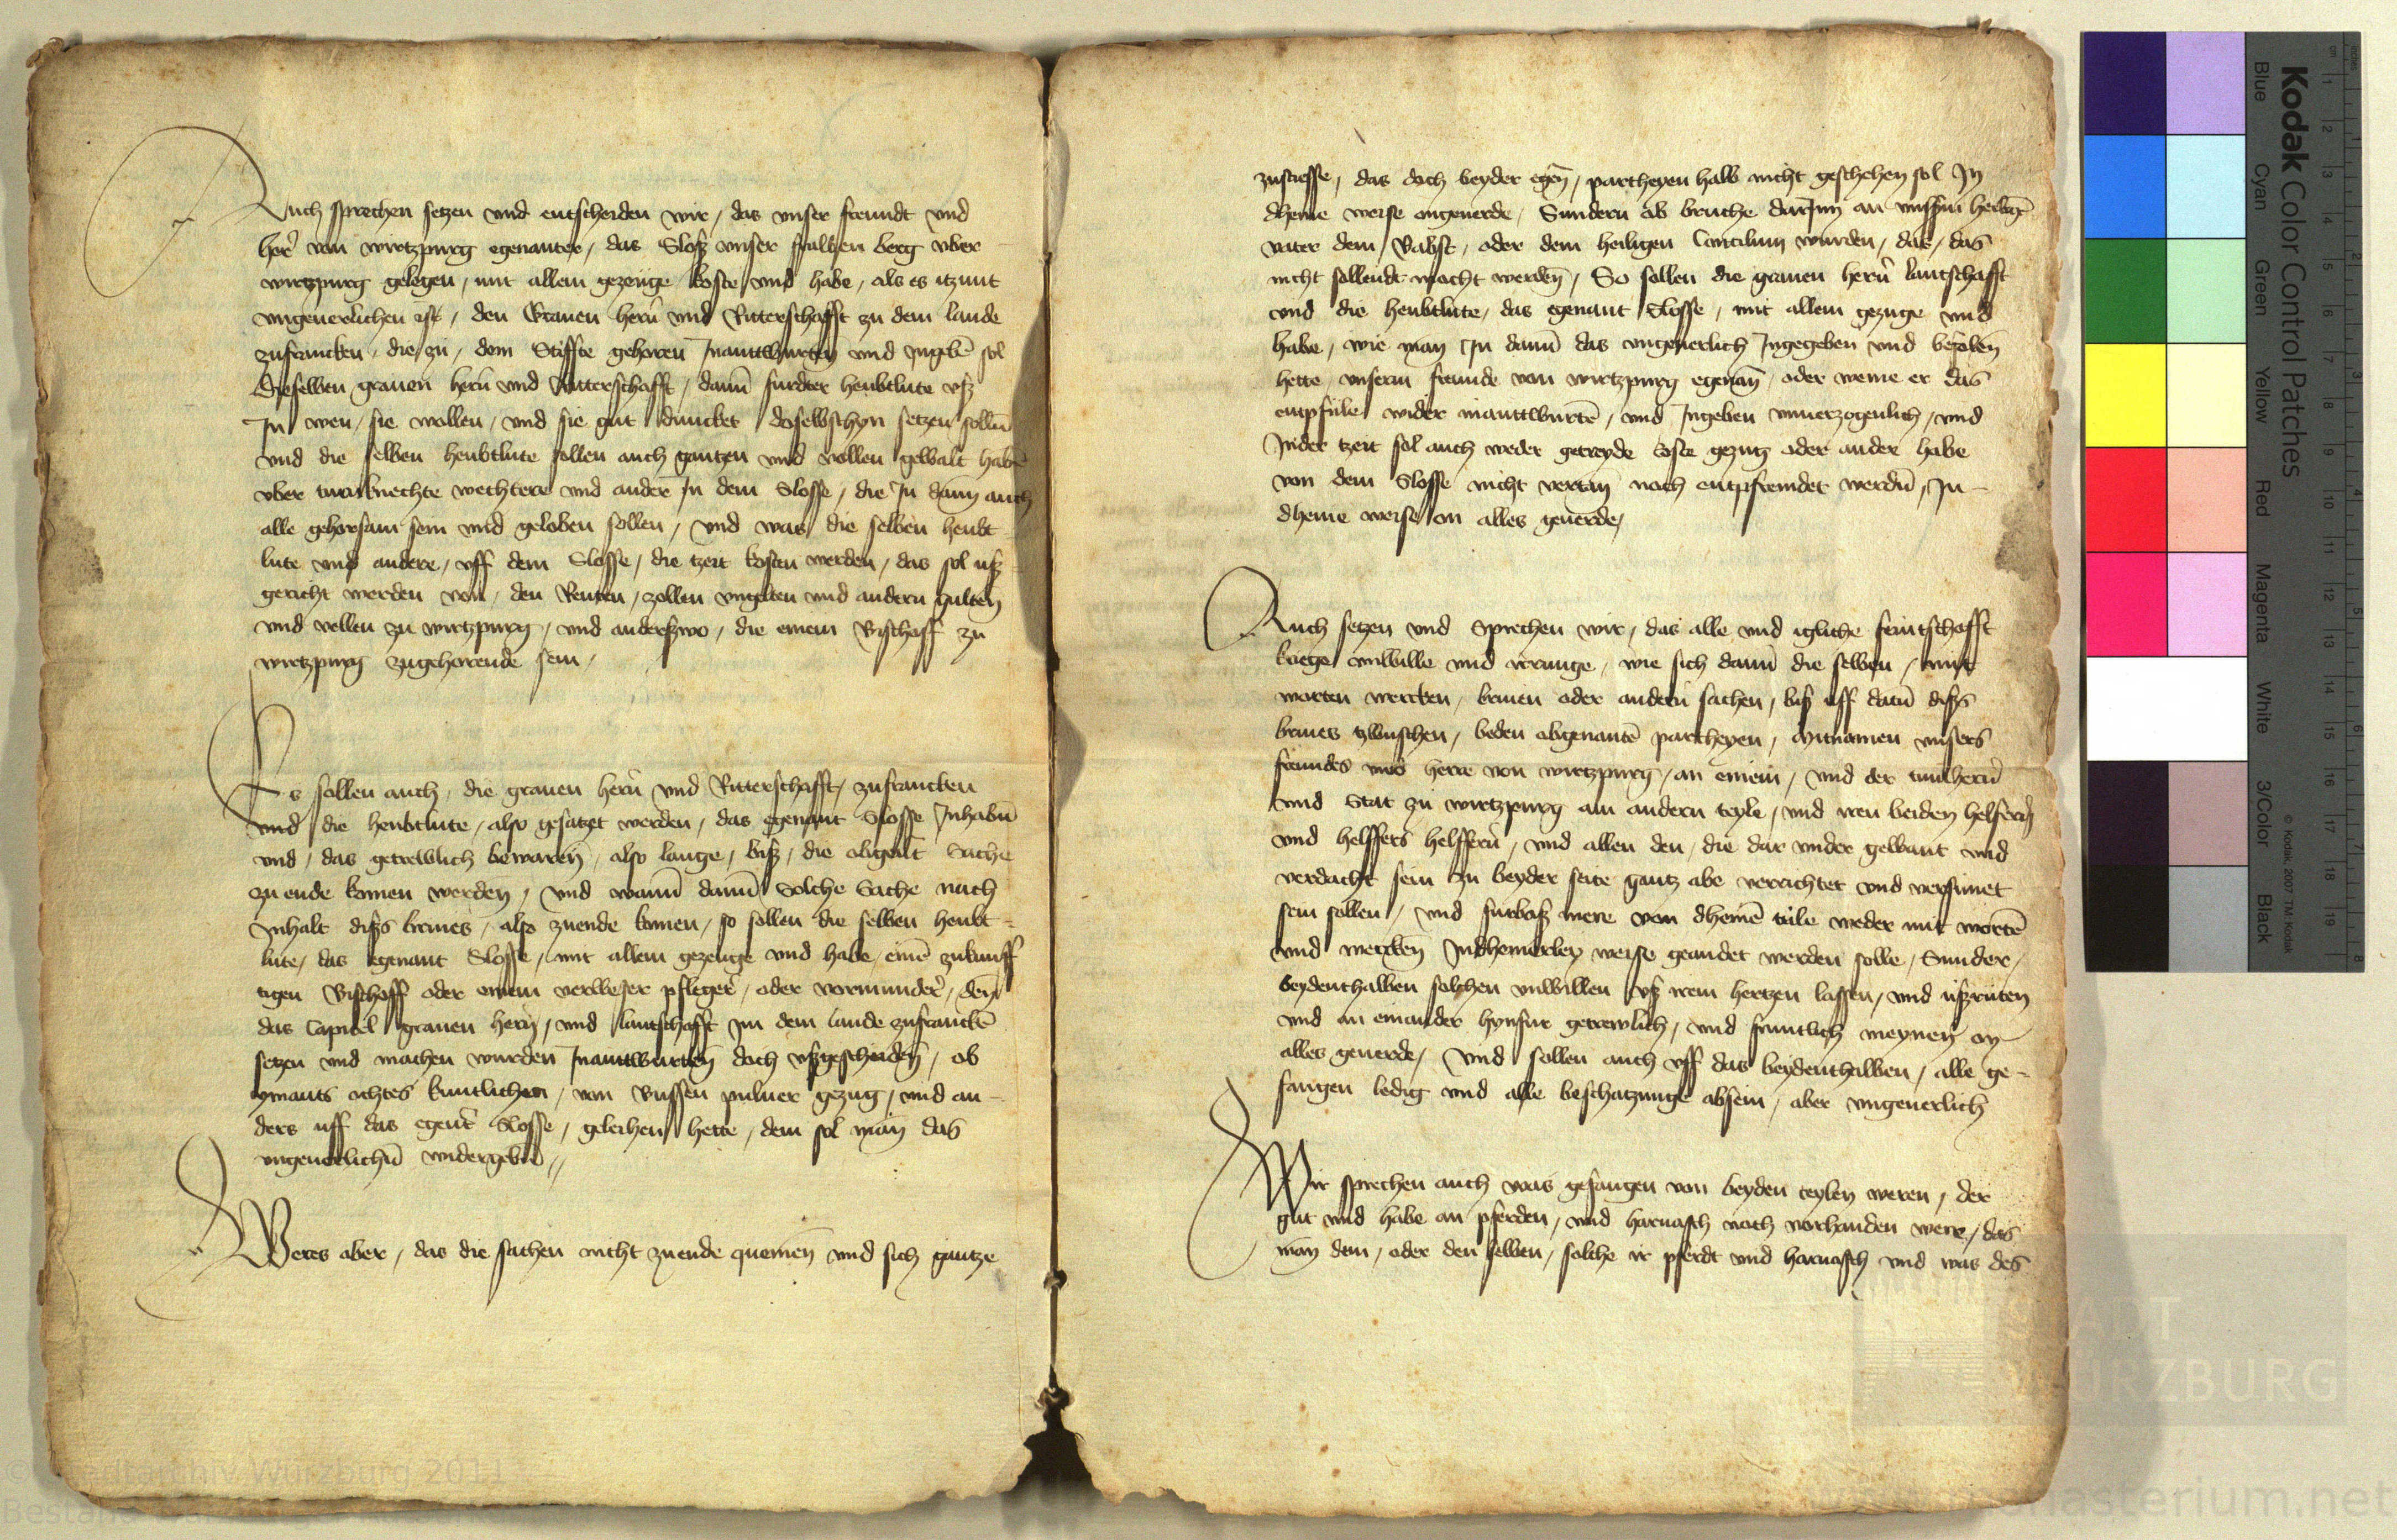 Auch sprechen setzen vnd entscheiden wir / das vnser freundt vnd
her von wirtzpurg egenanter / das Sloß vnser frauwen berg vber
wirtzpurg gelegen / mit allem gezeuge koste vnd habe / als es itzunt
vngeuerlichen ist / den Grauen hern vnd Ritterschafft zu dem lande
zufrancken / die zu / dem Stiffte gehoren Inanttwurten vnd Ingeben sol
Dieselben grauen hern vnd Ritterschafft / dann furdter heubtlute vß
In wen / sie wollen / vnd sie gut duncket / doselbsthyn setzen solln
vnd die selben heubtlute sollen auch gantzen vnd vollen gewalt habe
vber turnknechte wechtere vnd ander In dem Slosse / die In dann auch
alle gehorsam sein vnd geloben sollen / vnd was die selben heubt
lute vnd andere / vff dem Slosse / die tzeit kosten werden / das sol uß
gericht werden von / den Renten / zollen vngelten vnd andern gulten
vnd vellen zu wirtzpurg / vnd anderßwo / die einem Bischoff zu
wirtzpurg zugehorende sein /
Es sollen auch / die grauen hern vnd Ritterschafft / zufrancken
vnd die heubtlute / also gesatzt werden / das egenant Slosse Inhabn
vnd / das getrewlich bewaren / also lange / biß / die obgenlt Sache
zu ende komen werden / vnd wann dann Solche Sache nach
Inhalt dißs brieues / also zuende komen / so sollen die selben heubt
lute / das egenant Slosse / mit allem gezeuge vnd habe / eine zukunff
tigen Bischoff oder einem verweser pfleger / oder vormunder / den
das Capitel grauen hern / vnd lantschafft Im dem lande zufrancke
setzen vnd machen wurden Inanttwurtten doch vßgescheiden / ob
ymants ichtes kuntlichen / von Bussen puluer gezug / vnd an
ders uff das egent Slosse / gelerhen hette / dem sol man das
vngeuerlichn widergeben //
Weres aber / das die sachen nicht zuende quemen vnd sich gantze
zustiesse / das doch beyder egen / partheyen halb nicht geschehen sol In
dheine weise ongeuerde / Sundern ob bruche darInn an vnsßm heilige
vater dem Babst / oder dem heiligen Concilium wurden / das / das
nicht follendt mocht werden / So sollen die grauen hern lantschafft
vnd die heubtlute / das egenant Slosse / mit allem gezuge vnd
habe / wie man In dann das vngeuerlich Ingegeben vnd befolen
hette / vnserm freunde von wirtzpurg egenan / oder weme er das
entpfule / wider inanttwurte / vnd Ingeben vnuerzogenlich / vnd
Inder tzeit sol auch weder getreyde koste gezug oder ander habe
von dem Slosse nicht vertan noch entpfremdet werdn / In
dheine weise on alles geuerde /
Auch setzen vnd Sprechen wir / das alle vnd igliche feintschafft
kriege vnwille vnd irrunge / wie sich dann die selben / mit
worten wercken / brieuen oder andern sachen / biß uff datu dißs
brieues tzwischen / beden obgenante partheyen / Mitnamen vnsers
freundes vnd herre von wirtzpurg / an einem / vnd der tumhern
vnd Stat zu wirtzpurg am andern teyle / vnd iren beiden helfern
vnd helffers helffern / vnd allen den / die dar vnder gewant vnd
verdacht sein zu beyder seite gantz abe verrichtet vnd versunet
sein sollen / vnd furbaß mere von dheine tile weder mit worte
vnd wercken Indheinerley weise geandet werden solle / Sunder /
beydenthalben solchen vnwillen vß irem hertzen lassen / vnd ußruten
vnd an einander hynfur getrewlich / vnd fruntlich meynen on
alles geuerde / Vnd sollen auch vff das beydenthalben / alle ge-
fangen ledig vnd alle beschatzunge absein / aber vngeuerlich
Wir sprechen auch was gefangen von beyden teylen weren / der
gut vnd habe an pferden / vnd harnasch noch vorhanden were / das
man dem / oder den selben / solche ir pferdt vnd harnasch vnd was des
Kodak Color Control Patches
Blue Cyan Green Yellow Red Magenta White 3/Color Black
© Kodak 2007 TM: Kodak
STADT
WÜRZBURG
© Stadtarchiv Würzburg 2011
www.monasterium.net